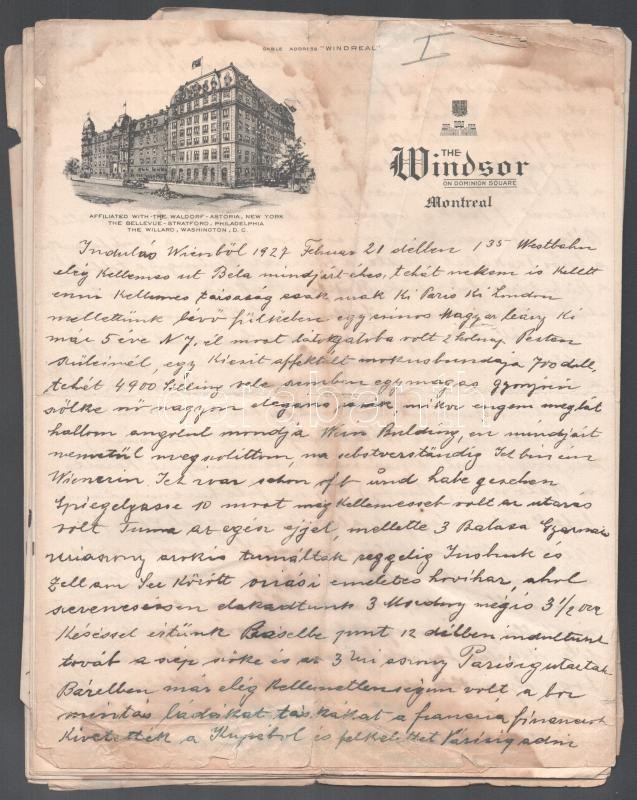 CABLE ADDRESS "WINDREAL"
I
THE
Windsor
ON DOMINION SQUARE
Montreal
AFFILIATED WITH - THE WALDORF - ASTORIA, NEW YORK
THE BELLEVUE - STRATFORD, PHILADELPHIA
THE WILLARD, WASHINGTON, D. C.
Indulás Wienből 1927 Februar 21 délben 1 35 Westbahn
elég Kellemes ut Béla mindjárt éhes, tehát nekem is Kellett
enni Kellemes társaság csak Ki Paris Ki London
mellettünk lévő fülkében egy csinos Magyar leány Ki
már 5 éve N.Y. él most látogatoba volt 2 holnap Pesten
szüleinél, egy Kicsit affektált mokusbundája 700 doll,
tehát 4900 Silling vele szemben egy magas gyönyörü
szőke nő nagyon elegans, mikor engem meglát
hallom angolul mondja Building, en mindjárt
németül megszolittom, na selbstverständig Ich bin ein
Wienerin. Ich war schon oft und habe gesehen
Spiegelgasse 10 most még Kellemesebb volt az utazás
volt az egész éjjel, mellette 3 Balasa Gyarmati
uriasszony azokis reggelig Insbruk és
Zell am See Között oriási emeletes hovihar, ahol
szerencsésen elakadtunk 3 mégis 3 1/2 ora
Késéssel értünk Baselbe punt 12 délben indultunk
továb a szép szőke és az 3 Uri asszony Parisig utaztak
Bázelben már elég Kellemetlenségem volt a
ládáikat táskákat a francia
Kivetették a Kupéból és Párisig